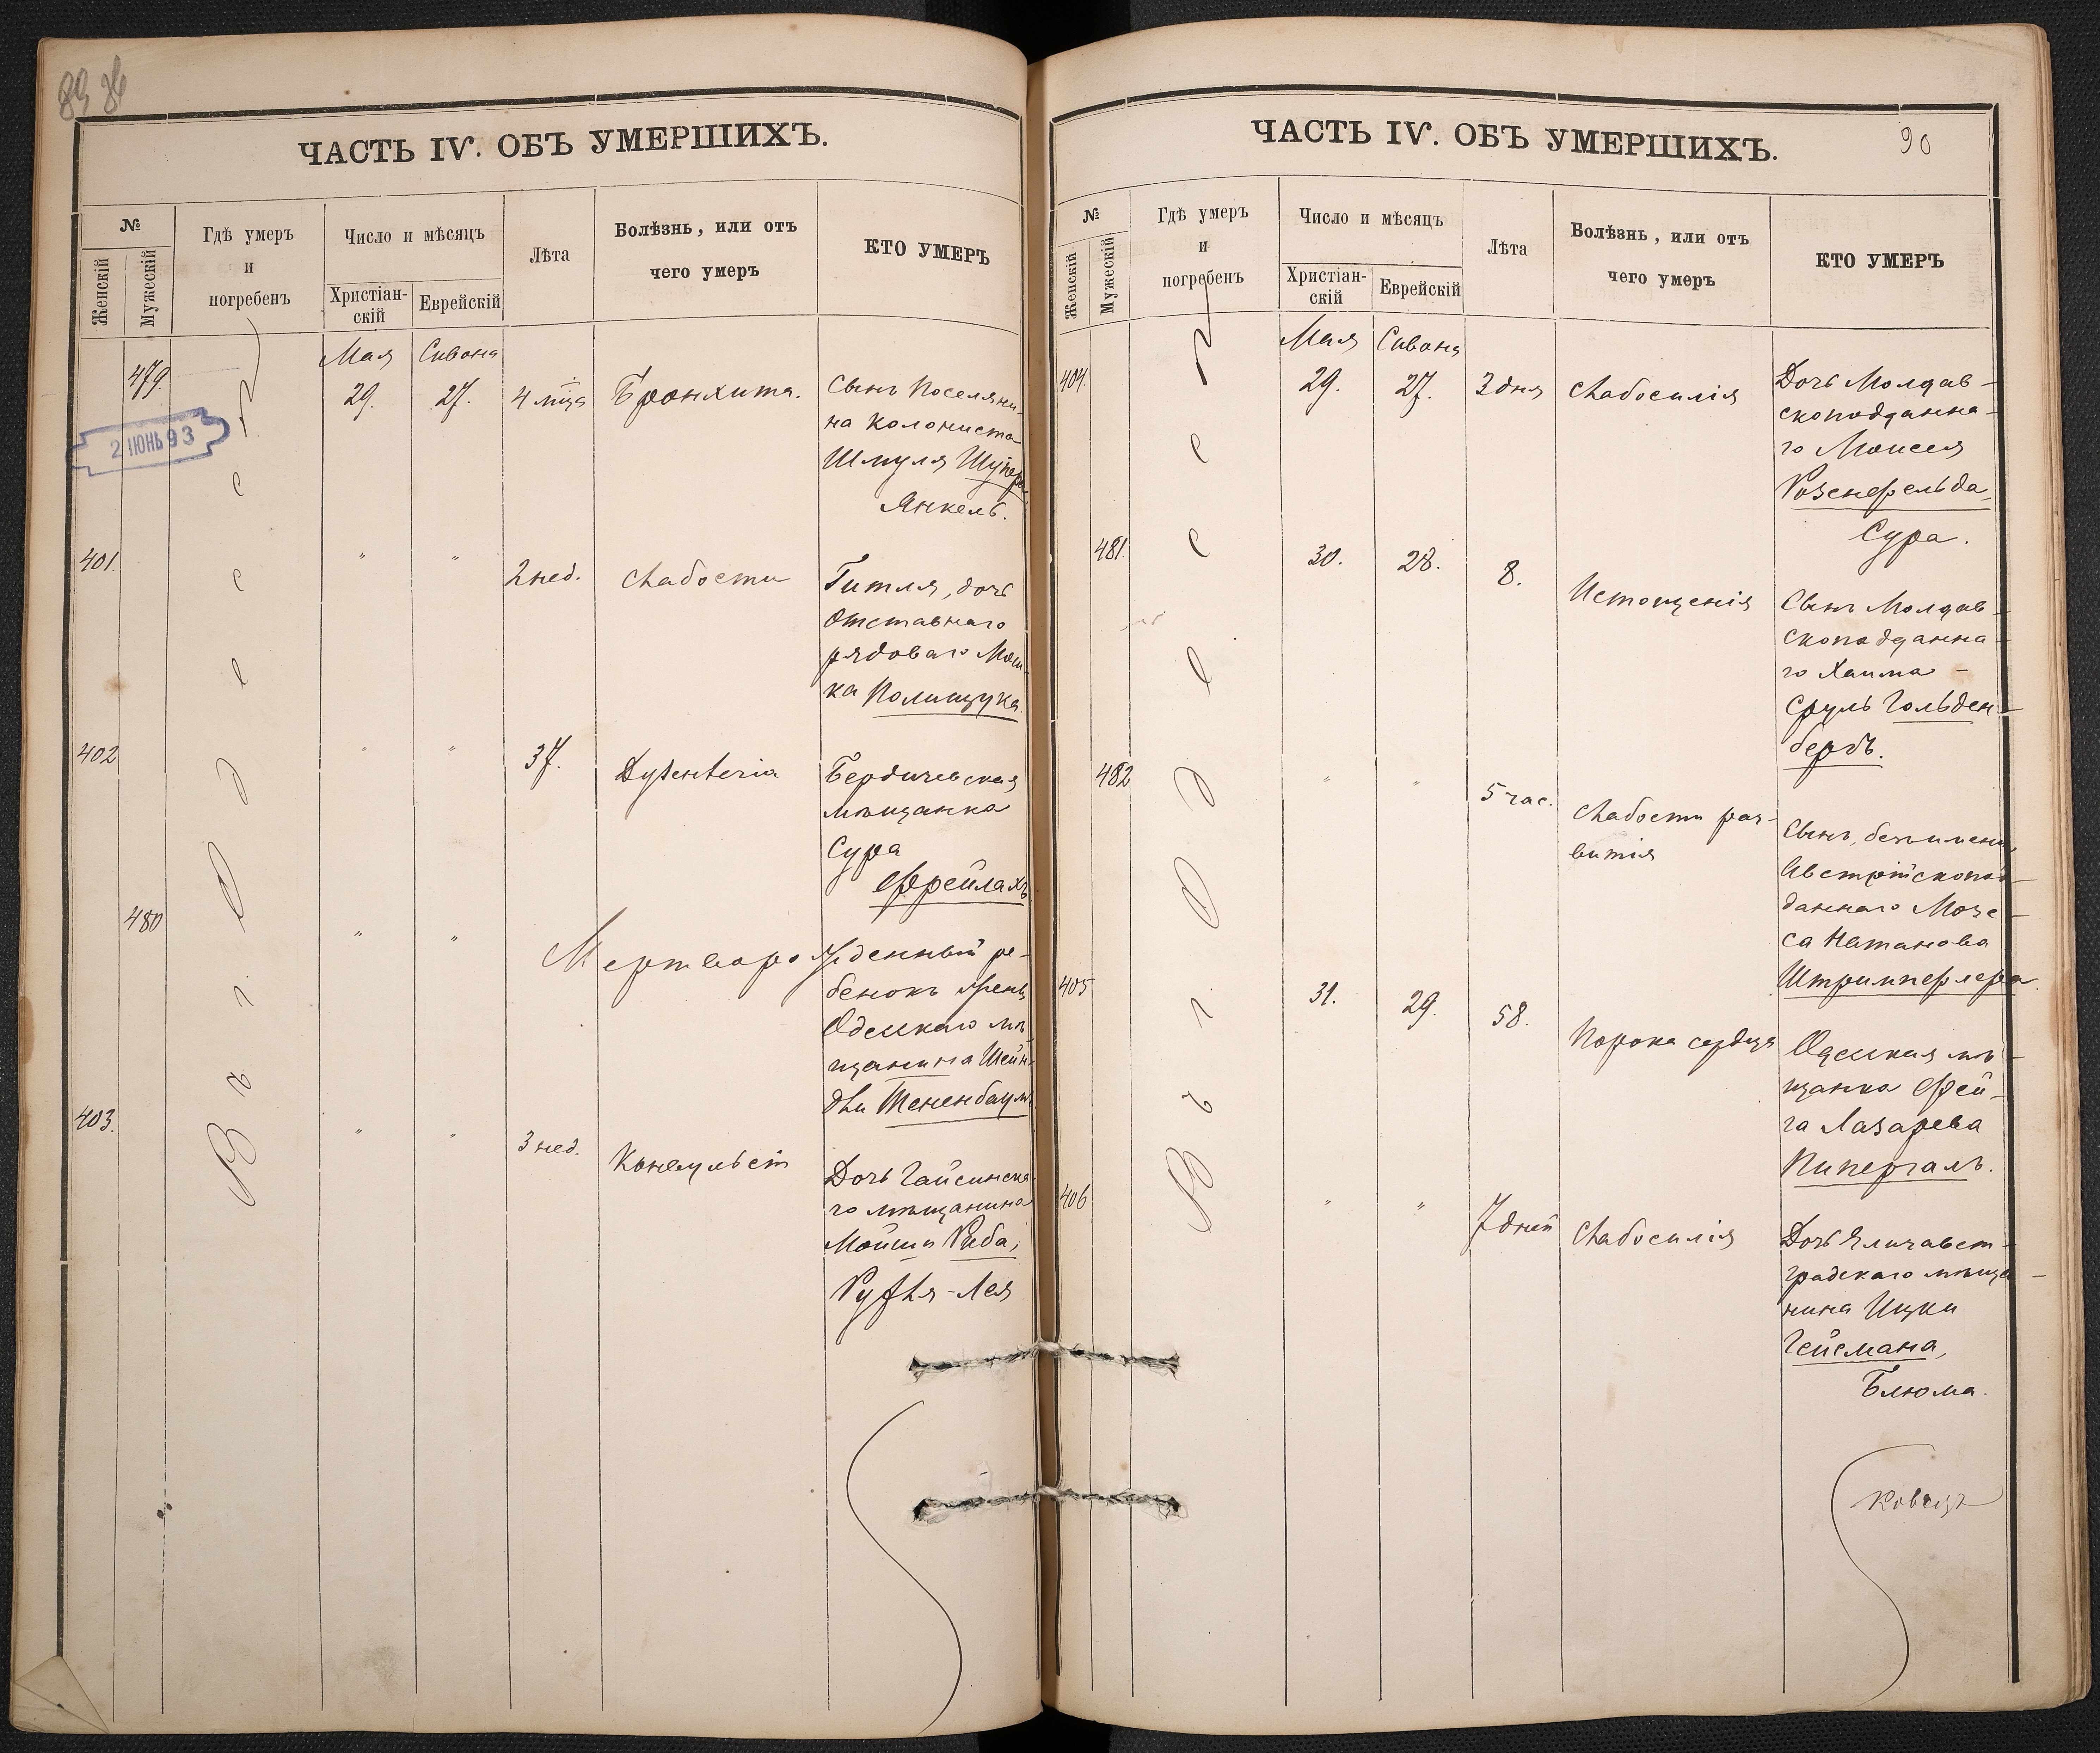 89
ЧАСТЬ IV. ОБЪ УМЕРШИХЪ.
№
Женскій
Мужескій
Гдѣ умеръ
и
погребенъ
Число и мѣсяцъ
Христіан-
скій
Еврейскій
Лѣта
Болѣзнь, или отъ
чего умеръ
КТО УМЕРЪ
Въ г. Одессѣ
Мая Сивана
479. 29. 27. 4 мца Бронхита. Сынъ Поселяни-
на Колониста
Шмуля
Янкель.
2 ІЮНЬ 93
401. " " 2 нед. Слабости Гитля, дочь
Отставнаго
рядоваго Мош-
ка Полищука
402 " " 37. Dysenteria Бердичевская
мѣщанка
Сура
Фрейлахъ
480 " " Мерторожденный ре-
бенокъ
Одесскаго мѣ
щанина Шейн-
дли Тененбаумъ
403. " " 3 нед. Дочь Гайсинска
го мѣщанина
Мойши Риба,
Рухля-Лея
ЧАСТЬ IV. ОБЪ УМЕРШИХЪ.
90
№
Женскій
Мужескій
Гдѣ умеръ
и
погребенъ
Число и мѣсяцъ
Христіан-
скій
Еврейскій
Лѣта
Болѣзнь, или отъ
чего умеръ
КТО УМЕРЪ
Въ г. Одессѣ
Мая Сивана
404. 29. 27. 3 дня Слабосилія Дочь Молдав-
скоподданна-
го Моисея
Розенфельда,
Сура.
481. 30. 28. 8. Истощенія Сынъ Молдав-
скоподданна-
го Хаима -
Сруль Гольден-
бергъ.
482 " " 5 час. Слабости раз-
витія
Сынъ, безъимени,
Австрійскопод-
даннаго Мозе-
са Натанова
Штримперлера.
405 31. 29. 58. Порока сердца Одесская мѣ-
щанка Фей-
га Лазарева
Пипергалъ.
406 " " 7 дней Слабосилія Дочь Елисавет-
градскаго мѣща-
нина Ицки
Гейсмана,
Блюма.